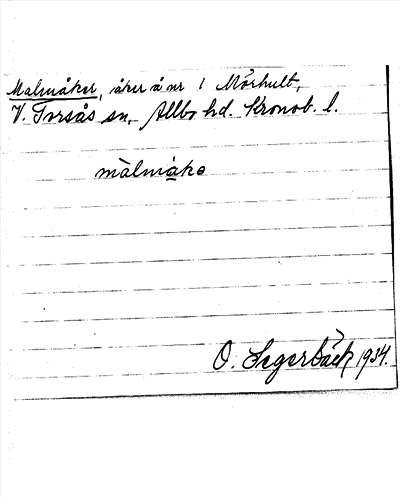 Malmåker, åker å nr 1 Mörhult,
V. Torsås sn, Allbo hd. Kronob. l.
màlmåkə
O. Segerbäck 1934.